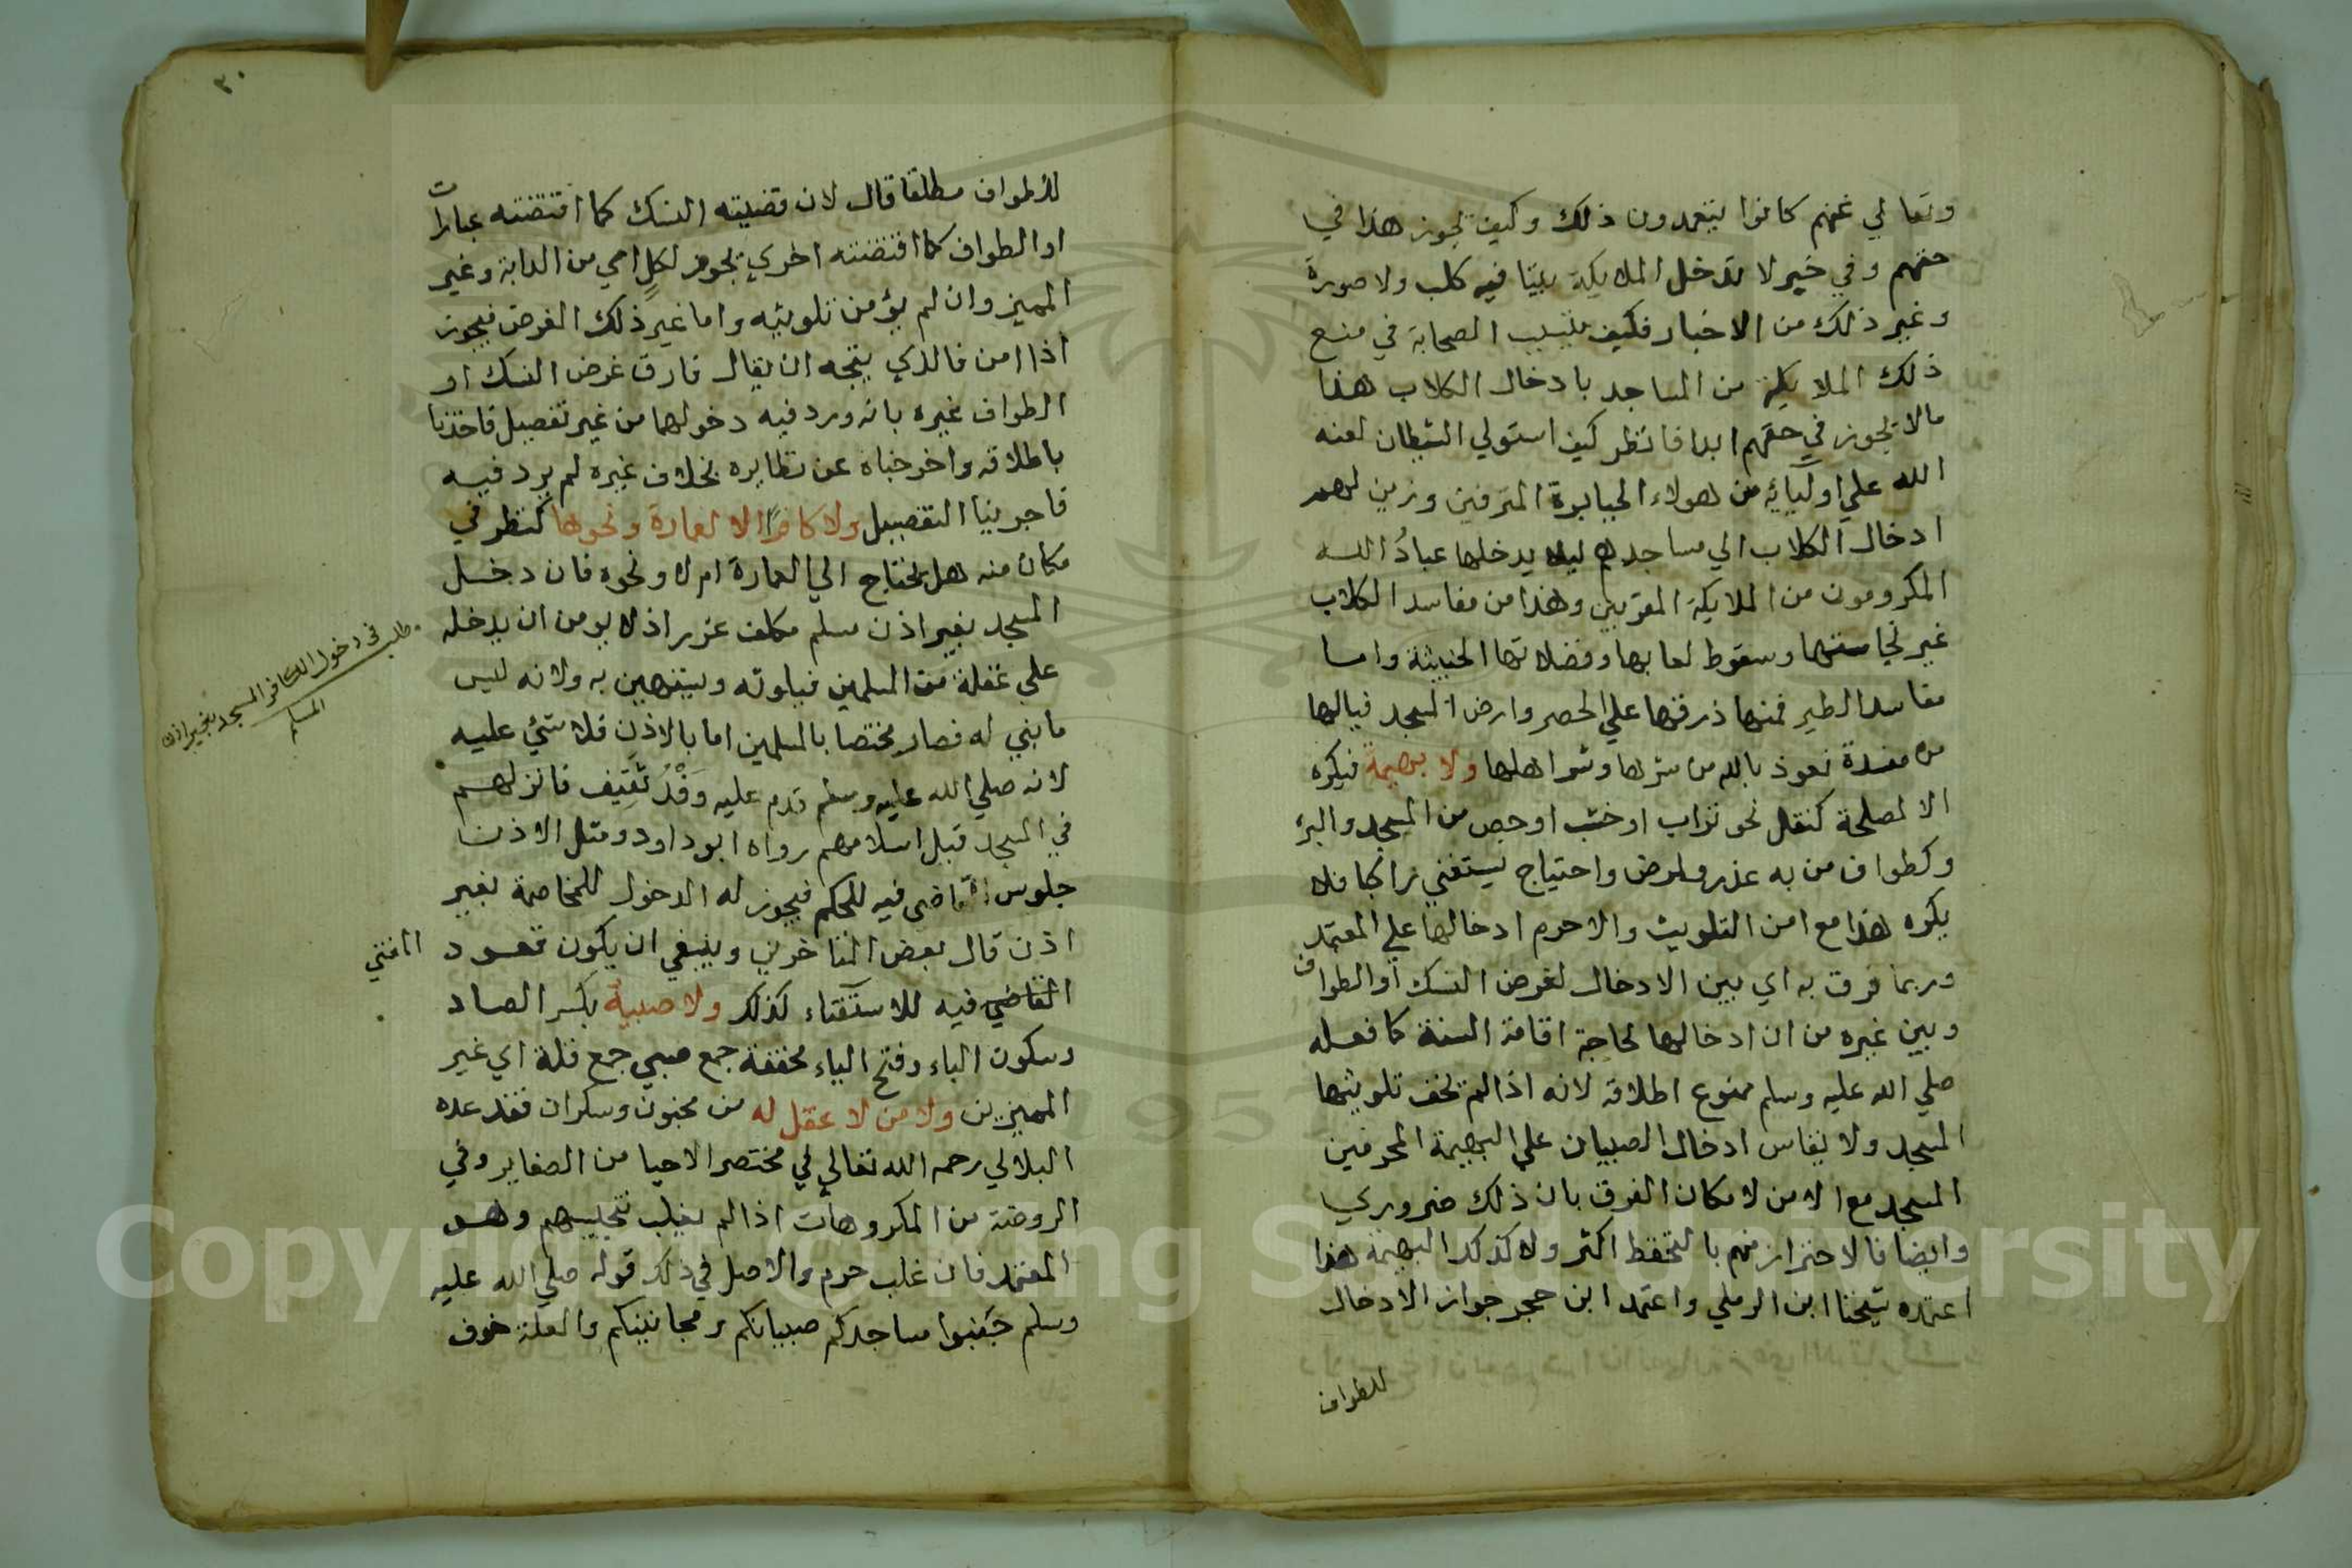 وتعالي عنهم كانوا يتعمدون ذلك وكيف يجوز هذا في
حقهم وفي خبر لا تدخل الملايكة بيتا فيه كلب ولا صورة
وغير ذلك من الاخبار فكيف يتسبب الصحابة في منع
ذلك الملايكة من المساجد بادخال الكلاب هذا
مالا يجوز في حقهم ابدا فانظر كيف استولي الشيطان لعنه
الله علي اوليائه من هولاء الجبابرة المترفين وزين لهم
ادخال الكلاب الي مساجدهم ليلا يدخلها عبادُ الله
المكرومون من الملايكة المقربين وهذا من مفاسد الكلاب
غير نجاستها وسقوط لعابها وفضلاتها الخبيثة واما
مفاسد الطير فمنها ذرقها علي الحصر وارض المسجد فيالها
من مفسدة نعوذ بالله من شرها وشر اهلها ولا بهيمة فيكره
الا لمصلحة كنقل نحو تراب او خشب او جص من المسجد واليه
وكطواف من به عذر ولمرض واحتياج يستفتي راكبا فلا
يكره هذا مع امن التلويث والاحرم ادخالها علي المعتمد
وربما فرق به اي بين الادخال لغرض النسك او الطواف
وبين غيره من ان ادخالها لحاجة اقامة السنة كما فعله
صلي الله عليه وسلم ممنوع اطلاقه لانه اذا لم يخف تلويثها
المسجد ولا يقاس ادخال الصبيان علي البهيمة المحرمين
المسجد مع الامن لامكان الفرق بان ذلك ضروري
وايضا فالاحتراز منهم بالتحفظ اكثر ولا كذلك البهيمة هذا
اعتمده شيخنا ابن الرملي واعتمد ابن حجر جواز الادخال
للطواف
٣٠
للطواف مطلقا قال لان قضيته النسك كما اقتضته عبارات
او الطواف كما اقتضته اخري يجوز لكلٍ اي من الدابة وغير
المميز وان لم يؤمن تلويثه واما غير ذلك الغرض فيجوز
اذا امن فالذي يتجه ان يقال فارق غرض النسك او
الطواف غيره بانه ورد فيه دخولهما من غير تفصيل فاخذنا
باطلاقه واخرجناه عن نظايره بخلاف غيره لم يرد فيه
فاجرينا التفصيل ولا كافرًا الا لعمارة ونحوها كنظر في
مكان منه هل يحتاج الي العمارة ام لا ونحوه فان دخل
المسجد بغير اذن مسلم مكلف عزر اذ لا يومن ان يدخله
علي غفلة من المسلمين فيلوثه ويستهين به ولانه ليس
مابني له فصار مختصا بالمسلمين اما بالاذن فلا شئ عليه
لانه صلي الله عليه وسلم قدم عليه وَفْدُ ثَقِيف فانزلهم
في المسجد قبل اسلامهم رواه ابو داود ومثل الاذن
جلوس القاضي فيه للحكم فيجوز له الدخول للمخاصمة بغير
اذن قال بعض المتاخرين وينبغي ان يكون قعود
القاضي فيه للاستفتاء كذلك ولا صبية بكسر الصاد
وسكون الباء وفتح الياء مخففة جمع صبي جمع قلة اي غير
المميزين ولا من لا عقل له من مجنون وسكران فقد عده
البلالي رحمه الله تعالي في مختصر الاحيا من الصغاير وفي
الروضة من المكروهات اذا لم يغلب تنجيسهم وهو
المعتمد فان غلب حرم والاصل في ذلك قوله صلي الله عليه
وسلم جَنِّبوا مساجدكم صبيانكم ومجانينكم والعلة خوف
مطلب في دخول الكافر المسجد بغير اذن
المسلم
المفتي
Copyright © King Saud University